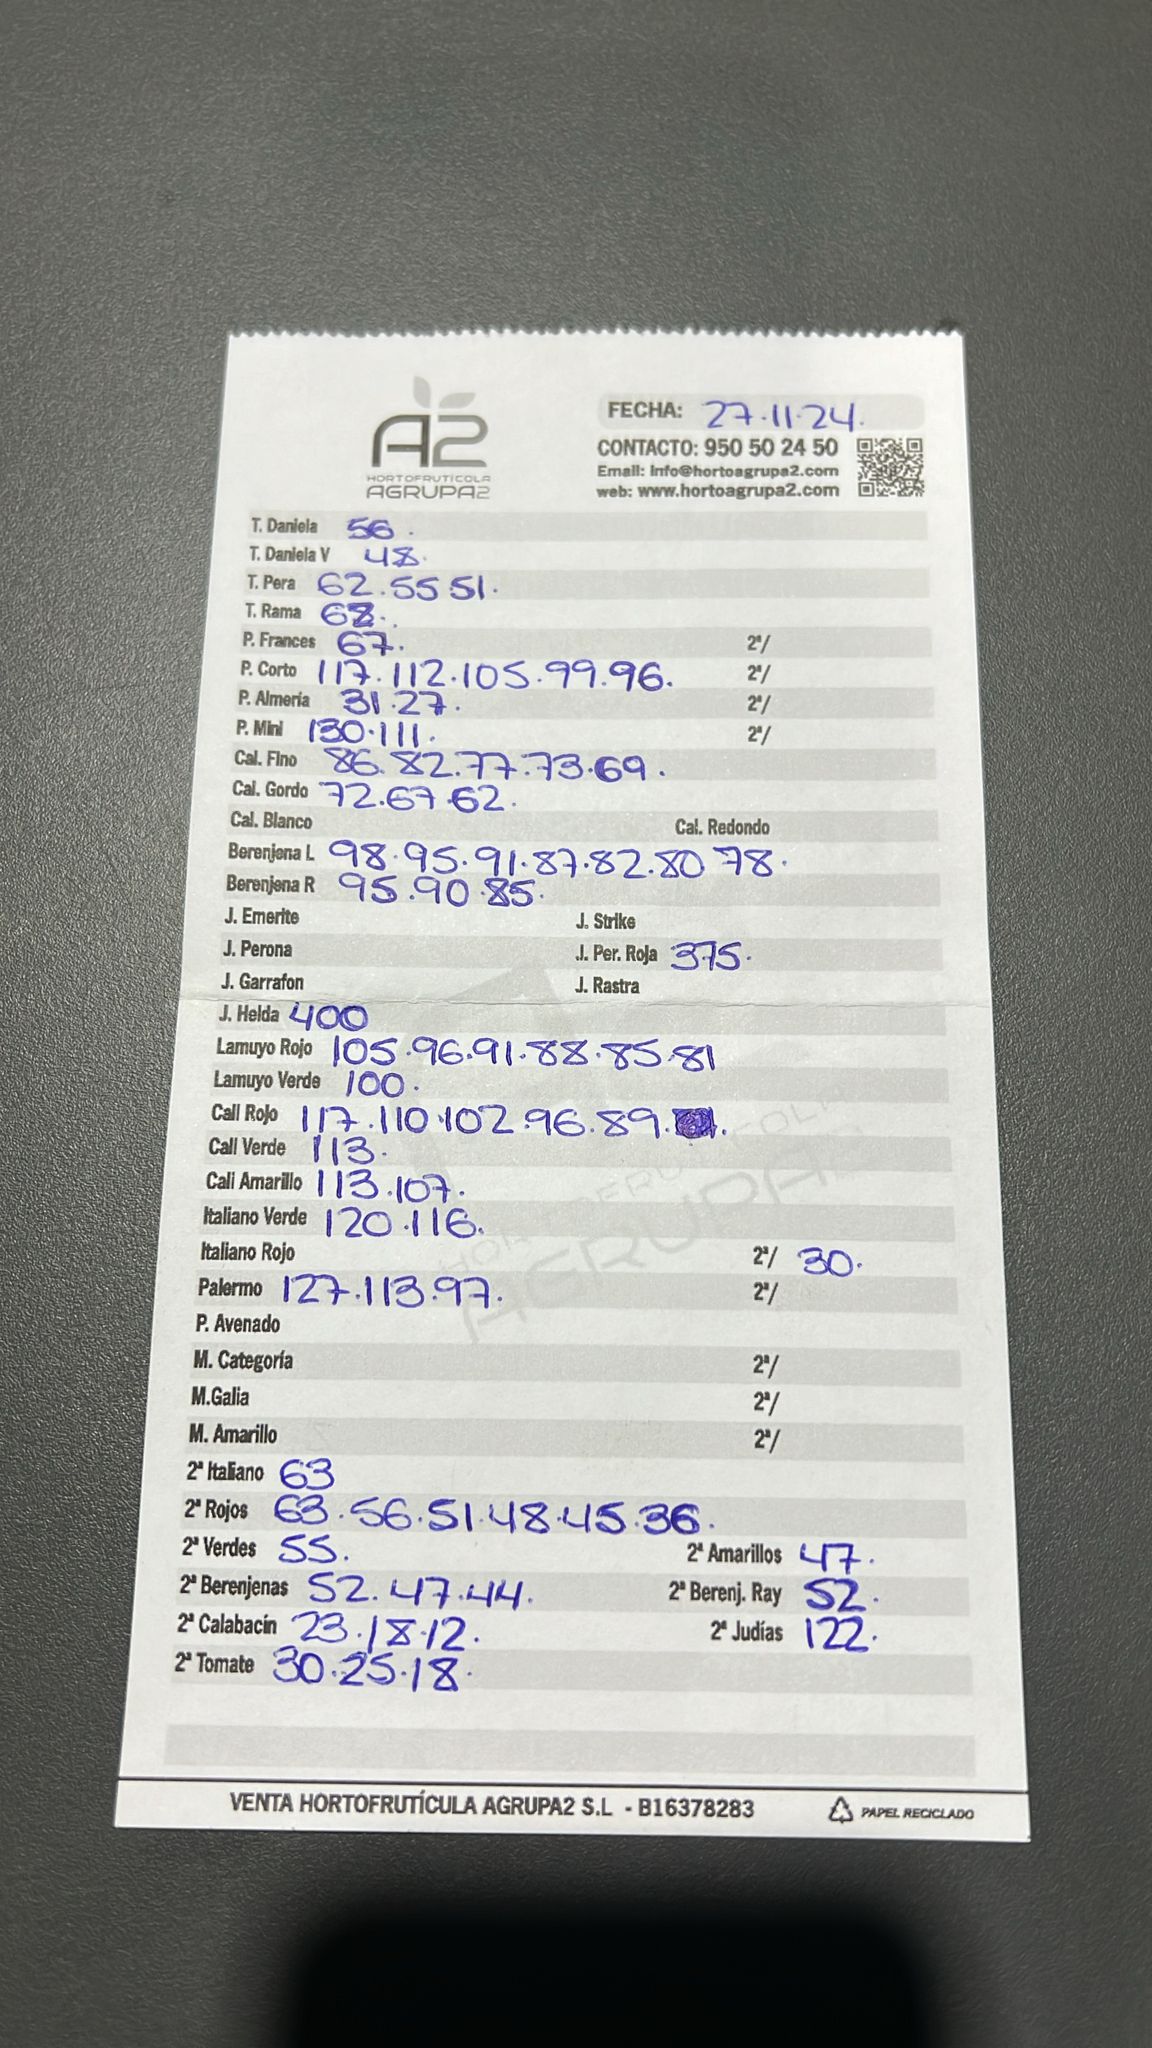 A2
HORTOFRUTÍCOLA
AGRUPA2
FECHA: 27.11.24.
CONTACTO: 950 50 24 50
Email: info@hortoagrupa2.com
web: www.hortoagrupa2.com
T. Daniela 56.
T. Daniela V 48.
T. Pera 62.55 51.
T. Rama 68.
P. Frances 67. 2ª/
P. Corto 117.112.105.99.96. 2ª/
P. Almería 31.27. 2ª/
P. Mini 130.111. 2ª/
Cal. Fino 86.82.77.73.69.
Cal. Gordo 72.67.62.
Cal. Blanco Cal. Redondo
Berenjena L 98.95.91.87.82.80 78.
Berenjena R 95.90.85.
J. Emerite J. Strike
J. Perona J. Per. Roja 375.
J. Garrafon J. Rastra
J. Helda 400
Lamuyo Rojo 105.96.91.88.85.81
Lamuyo Verde 100.
Cali Rojo 117.110.102.96.89.
Cali Verde 113.
Cali Amarillo 113.107.
Italiano Verde 120.116.
Italiano Rojo 2ª/ 30.
Palermo 127.113.97. 2ª/
P. Avenado
M. Categoría 2ª/
M.Galia 2ª/
M. Amarillo 2ª/
2ª Italiano 63
2ª Rojos 63.56.51.48.45.36.
2ª Verdes 55. 2ª Amarillos 47.
2ª Berenjenas 52.47.44. 2ª Berenj. Ray 52.
2ª Calabacín 23.18.12. 2ª Judías 122.
2ª Tomate 30.25.18.
VENTA HORTOFRUTÍCULA AGRUPA2 S.L - B16378283
PAPEL RECICLADO